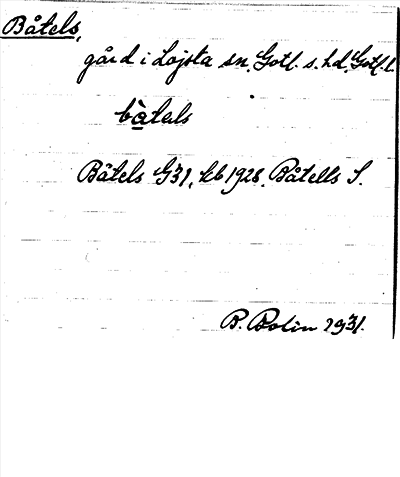 Båtels,
gård i Lojsta sn, Gotl. s. hd, Gotl. l.
bàtels
Båtels G31, kb 1928. Båtells S.
B. Bolin 1931.